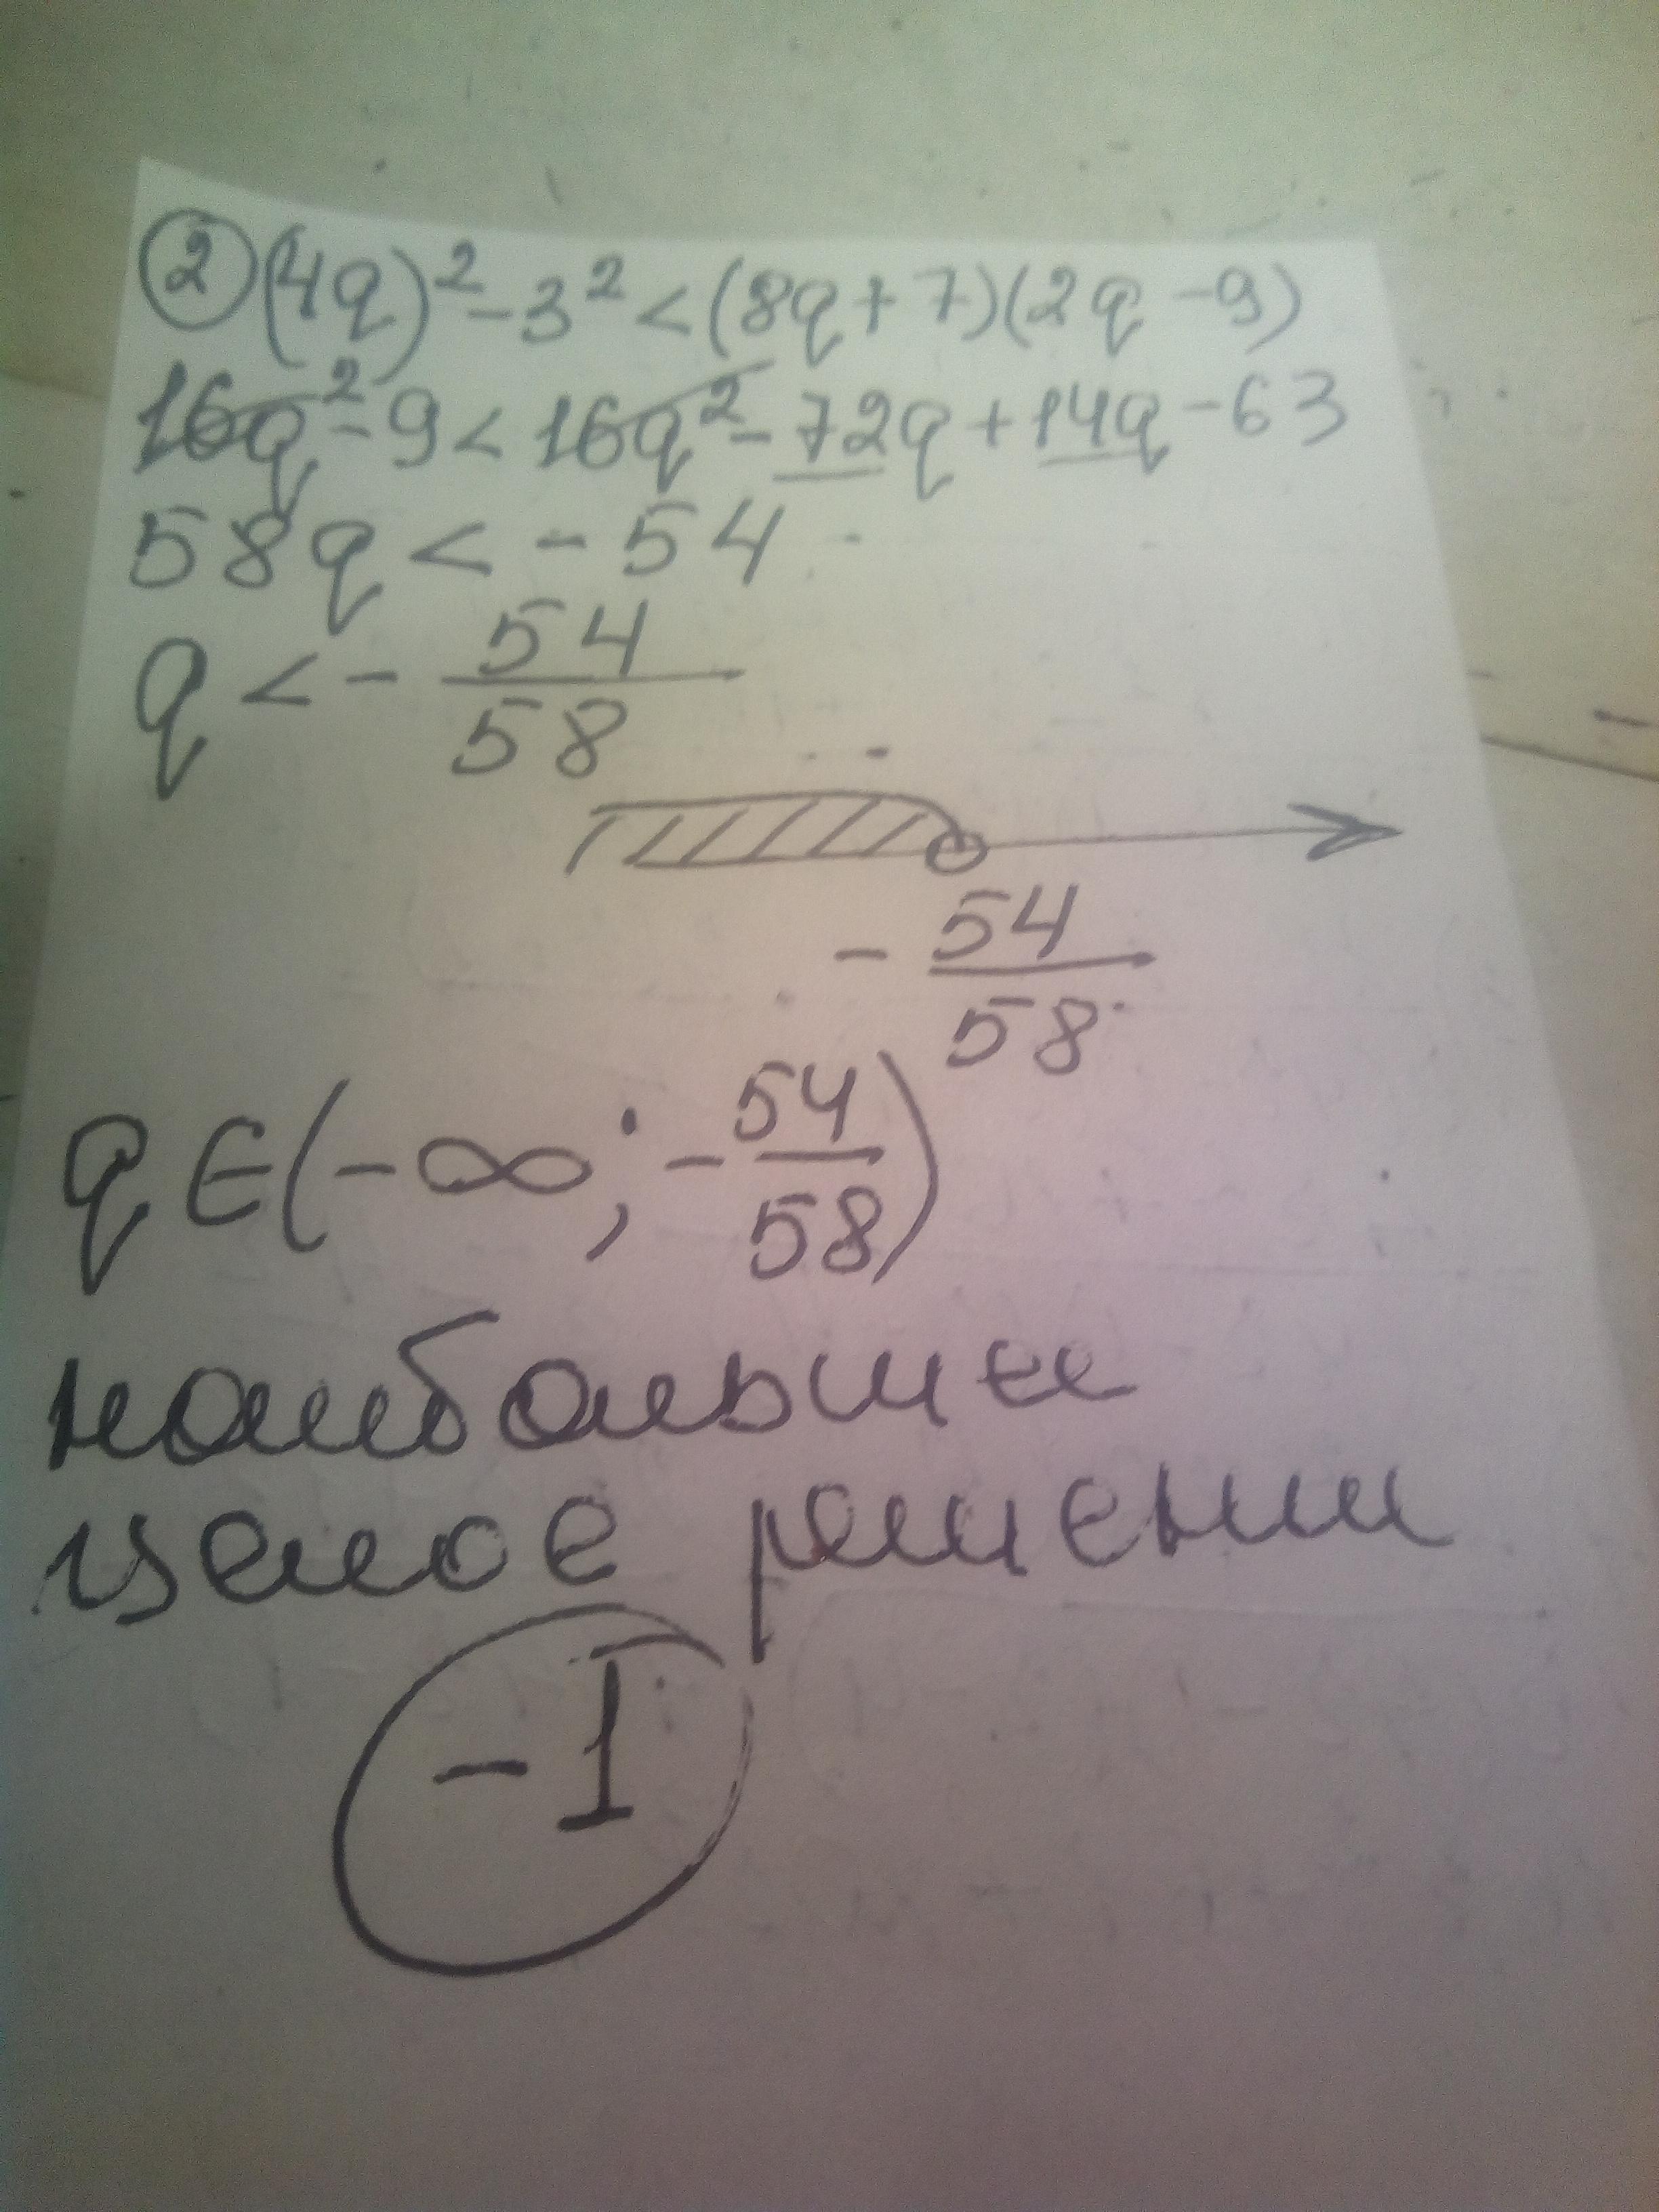 ② (4q)² - 3² < (8q + 7)(2q - 9)
16q² - 9 < 16q² - 72q + 14q - 63
58q < - 54
q < - 54/58
- 54/58
q ∈ (-∞; - 54/58)
наибольшее
целое решени
-1